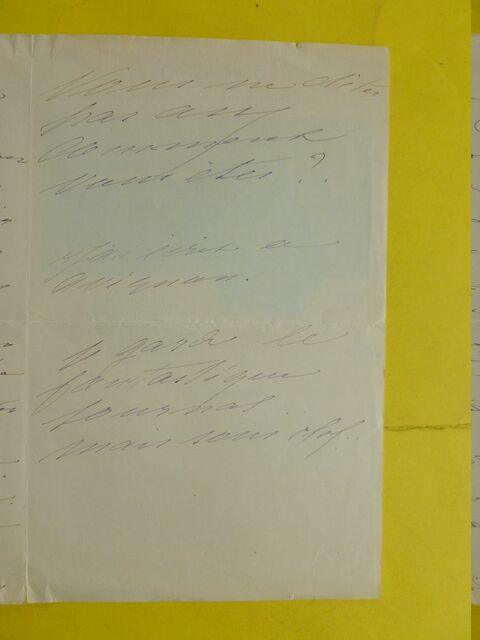 Vous ne dites
pas
comment
vous êtes ?
J'ai écrit a
avignon.
Je garde le
fantastique
journal
mais sous clef..